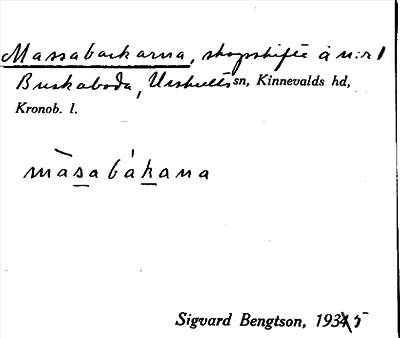 Massabackarna, skogsskifte å n:r 1
Buskaboda, Urshults sn, Kinnevalds hd,
Kronob. l.
màsabákana
Sigvard Bengtson, 1934 5